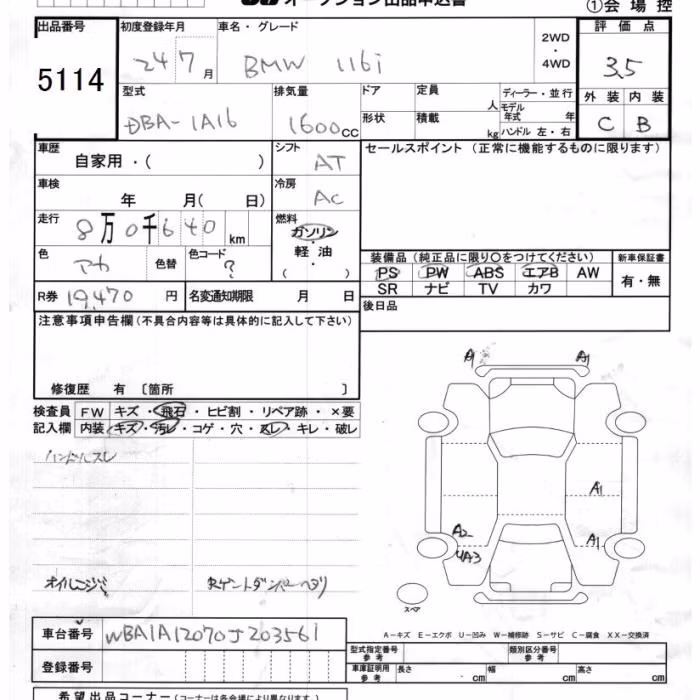 オークション出品申込書
①会場控
出品番号 初度登録年月 車名・グレード 評価点
5114 24 7月 BMW 116i 2WD・4WD 3.5
型式 排気量 ドア 定員 人 ディーラー・並行 外装 内装
DBA-1A16 1600cc 形状 積載 kg モデル年式 年 ハンドル 左・右 C B
車歴 自家用・( ) シフト AT セールスポイント (正常に機能するものに限ります)
車検 年 月( 日) 冷房 AC
走行 8万0千640km 燃料 ガソリン 軽油 ( ・ )
色 アカ 色替 色コード ? 装備品 (純正品に限り○をつけてください) 新車保証書
PS PW ABS エアB AW 有・無
SR ナビ TV カワ
R券 19,470 円 名変通知期限 月 日 後日品
注意事項申告欄 (不具合内容等は具体的に記入して下さい)
修復歴 有 〔箇所 〕
検査員 FW キズ・飛石・ヒビ割・リペア跡・×要
記入欄 内装 キズ・汚レ・コゲ・穴・スレ・キレ・破レ
ハンドルスレ
A1 A1
A1
A2 A1
4A3
オイルニジミ
スペア
A-キズ E-エクボ U-凹み W-補修跡 S-サビ C-腐食 XX-交換済
車台番号 WBA1A12070J203561
登録番号
型式指定番号 参考 類別区分番号 参考
車庫証明用 参考 長さ cm 幅 cm 高さ cm
希望出品コーナー (コーナーは各会場により異なります)